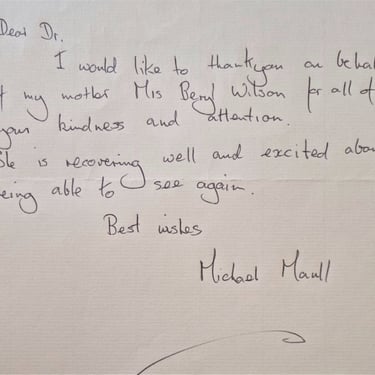 Dear Dr.
I would like to thankyou on behal
f my mother Mrs Beryl Wilson for all of
your kindness and attention.
She is recovering well and excited abou
eing able to see again.
Best wishes
Michael Maull